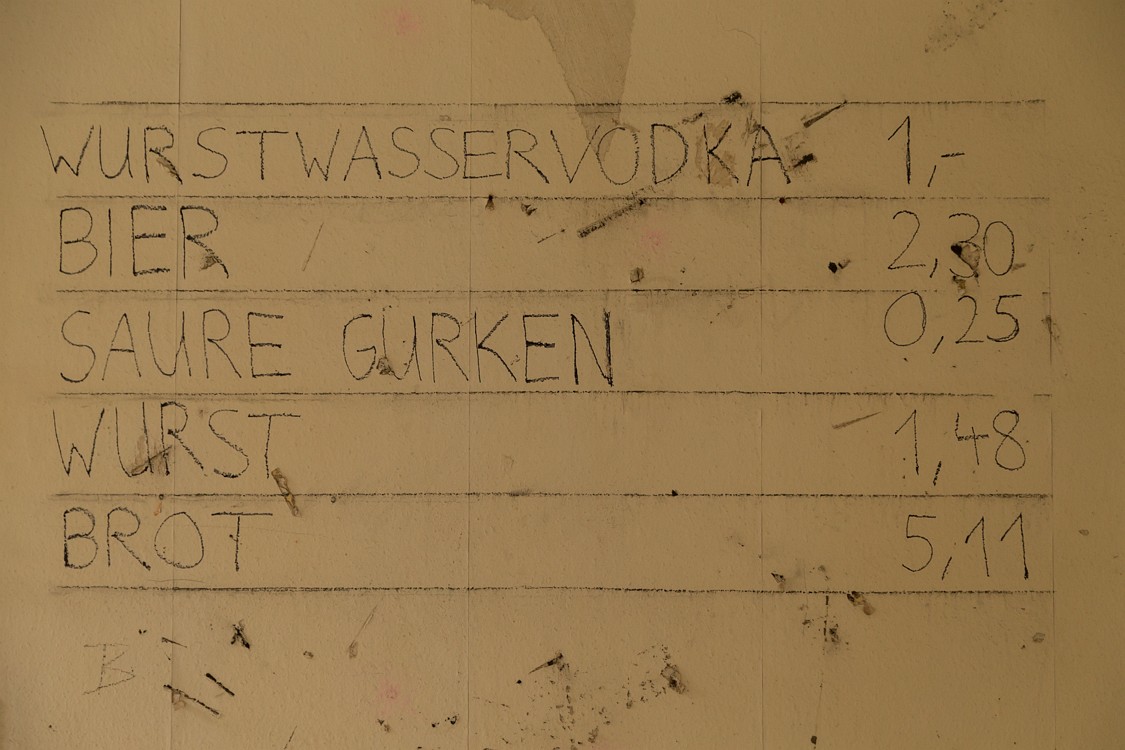 WURSTWASSERVODKA 1,-
BIER 2,30
SAURE GURKEN 0,25
WURST 1,48
BROT 5,11
B